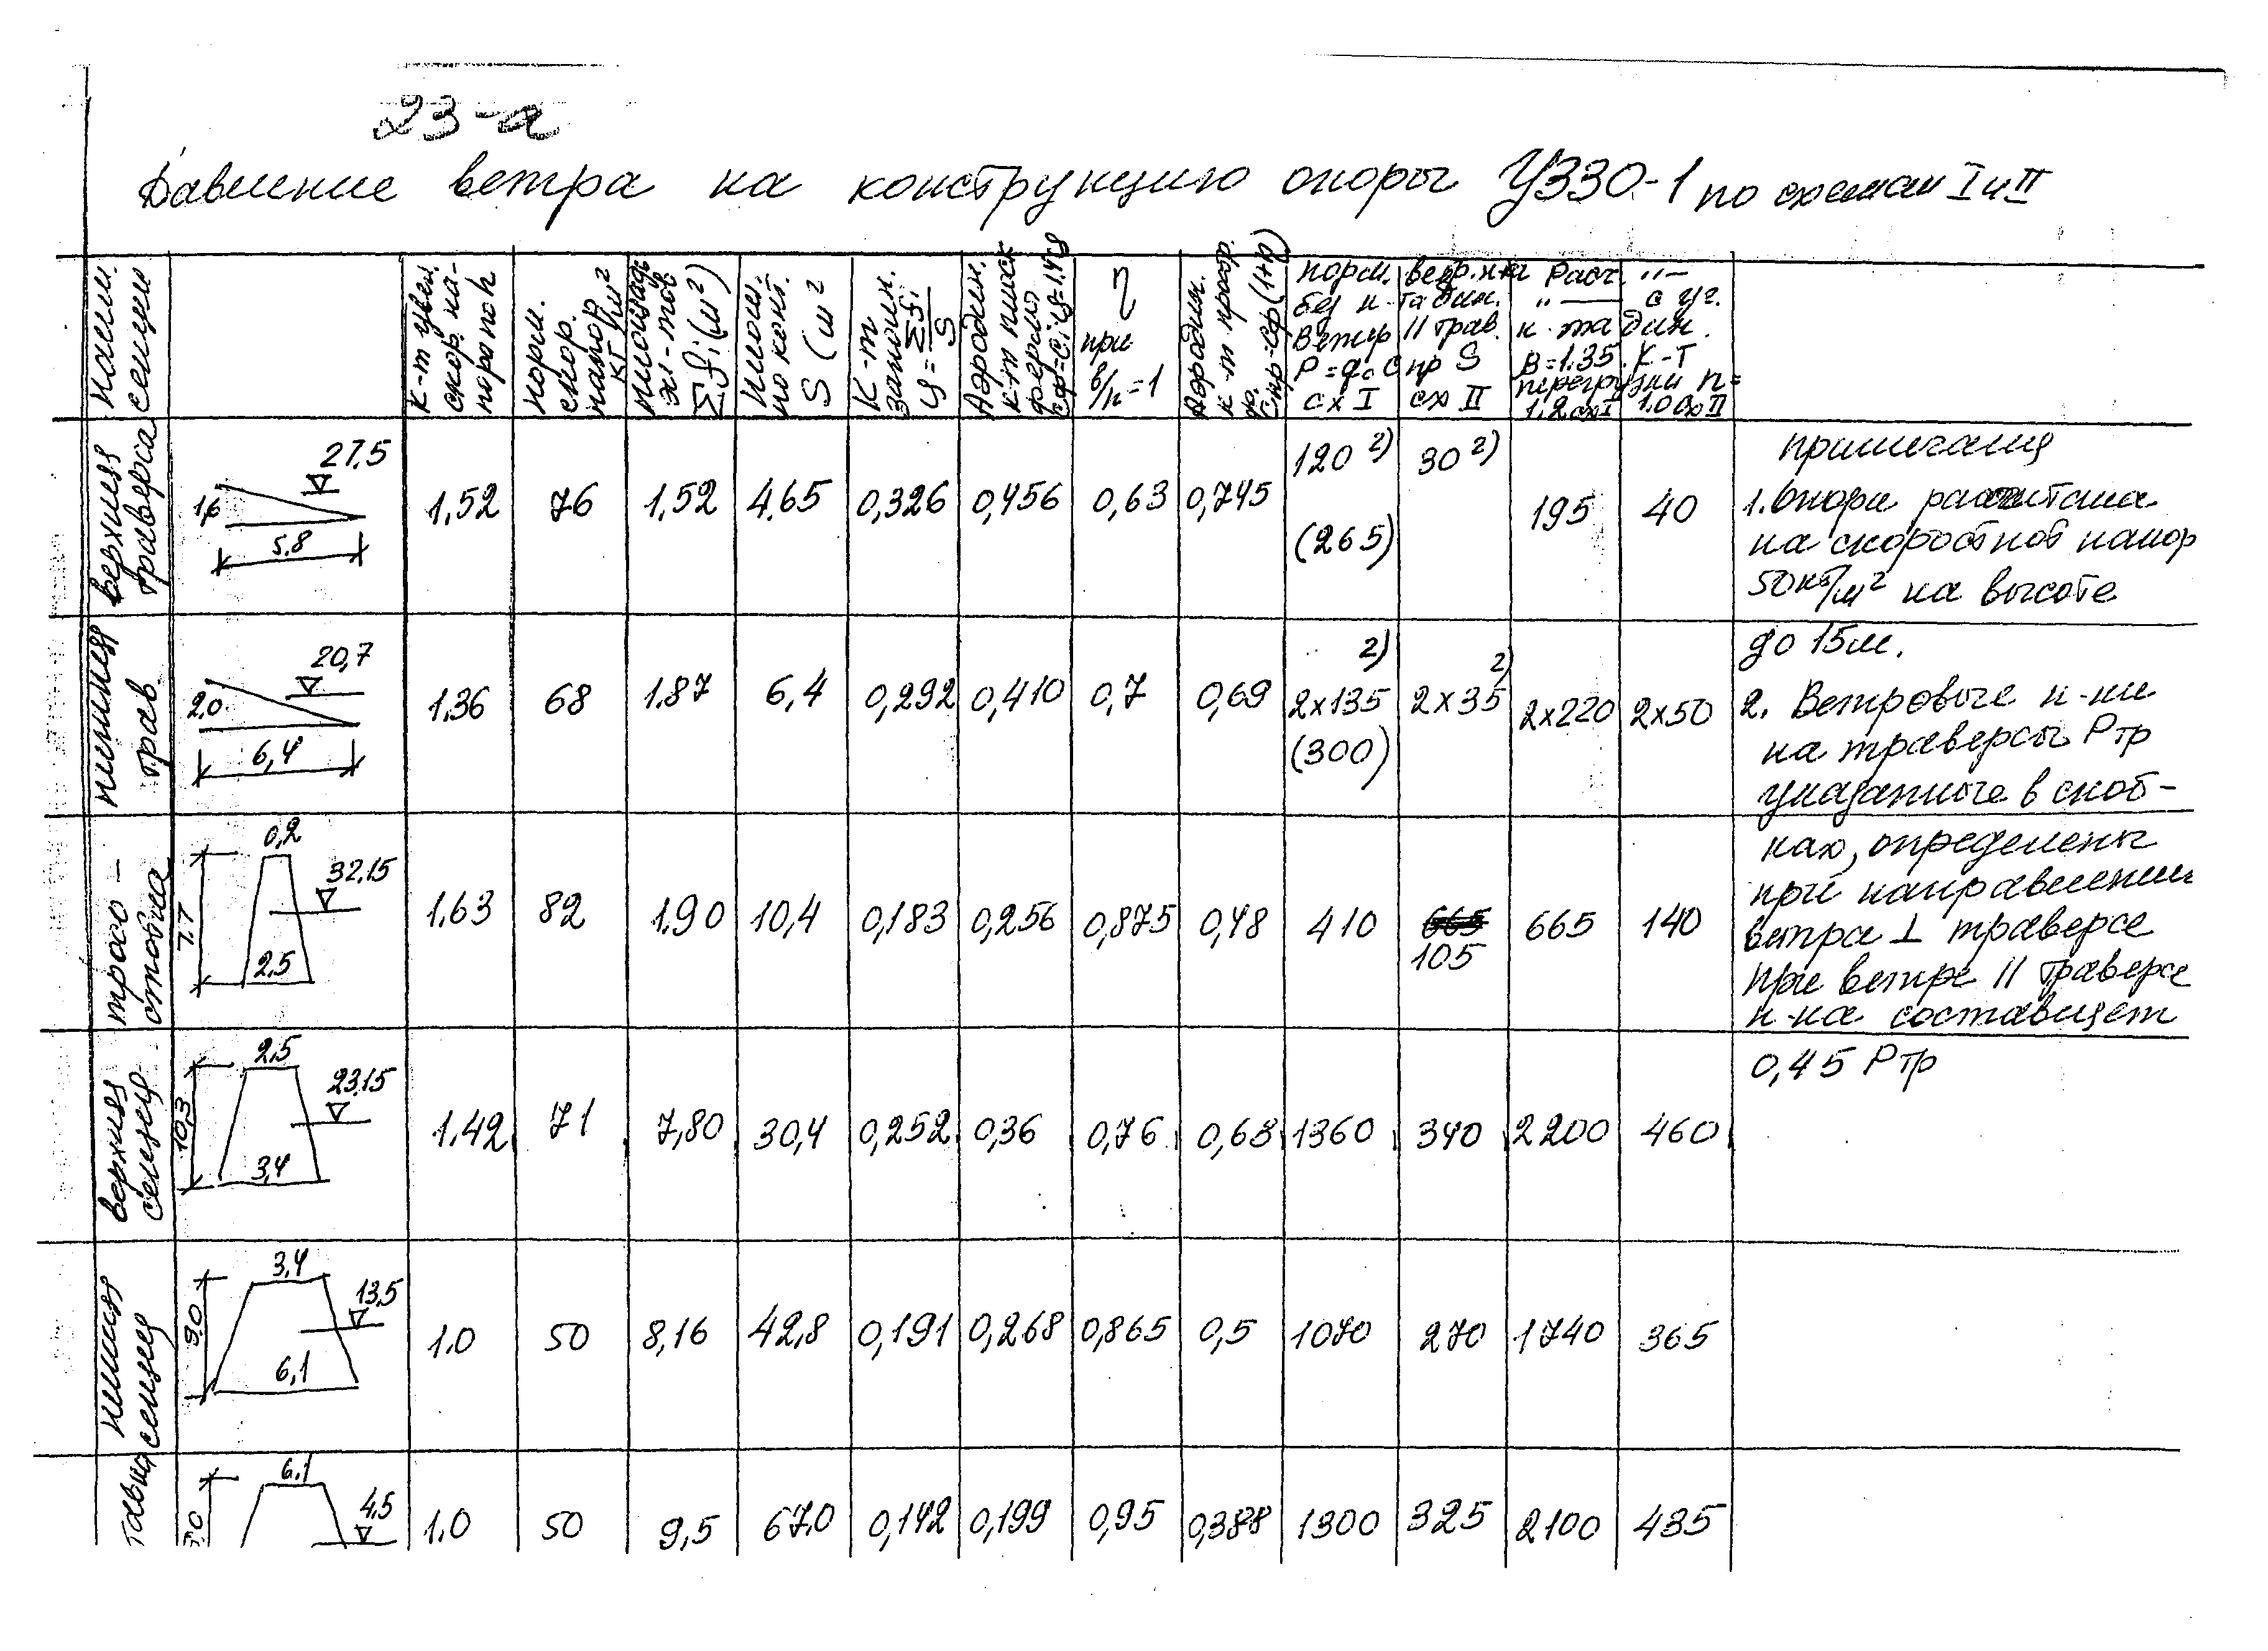 23-а
Давление ветра на конструкцию опоры У330-1 по схемам I и II
наим. секции
К-т увел. скор. на- пора по h
норм. скор. напор кг/м²
площадь эл-тов Σfi (м²)
площ. по конт. S (м²
К-т заполн. φ = Σfi/S
Аэродин. к-т плоск фермы Сф=Ci φ=1.4φ
η при b/h =1
Аэродин. к-т простр. Спр=Сф(1+η)
норм. ветр. н-ка
без к-та дин.
Ветер // трав.
P = q. C пр S
сх I сх II
Расч. "—
"— с уч.
к-та дин.
B=1.35 К-Т
перегрузки n=
1.2 сх I 1.0 сх II
верхняя траверса
1,6 5.8 27.5 1,52 76 1,52 4.65 0,326 0,456 0,63 0,745 120 2) (265) 30 2) 195 40
нижняя трав.
2.0 6,4 20,7 1.36 68 1.87 6,4 0,292 0,410 0,7 0,69 2) 2х135 (300) 2) 2х35 2х220 2х50
тросо-
стойка
0,2 7.7 2.5 32.15 1.63 82 1.90 10,4 0,183 0,256 0,875 0,48 410 665 105 665 140
верхняя секция
2.5 10,3 3,4 23.15 1.42 71 7,80 30,4 0,252 0,36 0,76 0,63 1360 340 2200 460
нижняя секция
3.4 9.0 6,1 13.5 1.0 50 8,16 42,8 0,191 0,268 0,865 0,5 1070 270 1740 365
6.1 4.5 1.0 50 9,5 67.0 0,142 0,199 0,95 0,388 1300 325 2100 435
примечания
1. Опора расчитана
на скоростной напор
50 кг/м² на высоте
до 15м.
2. Ветровые н-ки
на траверсы Ртр
указанные в скоб-
ках, определены
при направлении
ветра ⊥ траверсе
При ветре // траверсе
н-ка составляет
0,45 Ртр